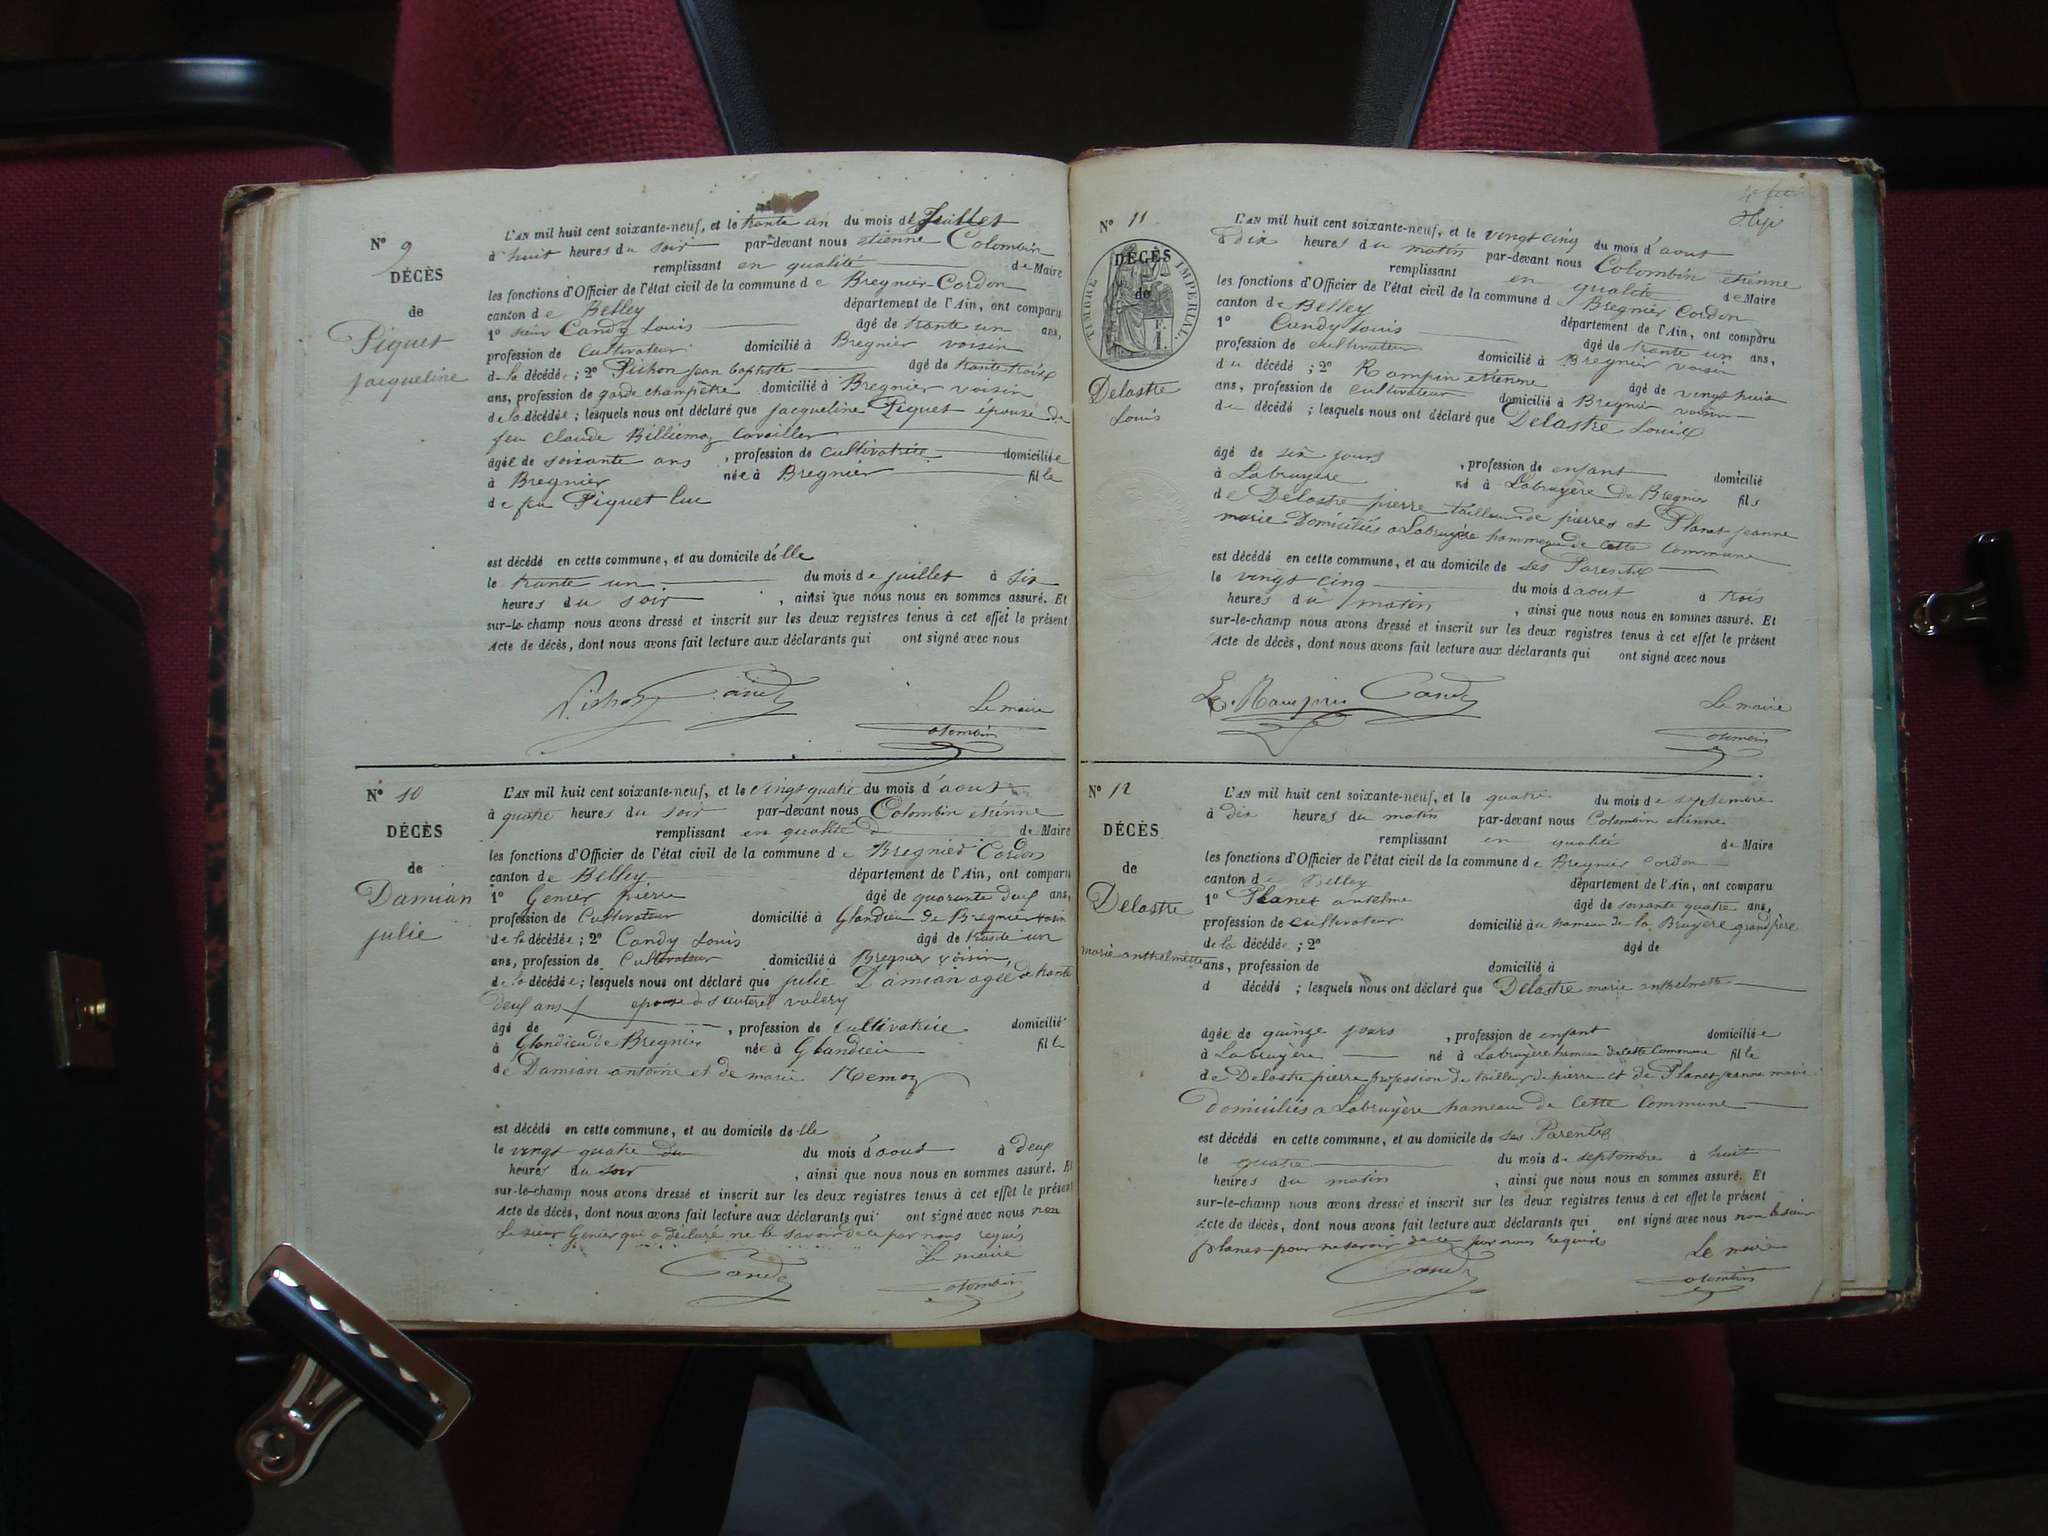 Nº 9
DÉCÈS
de
Piquet
jacqueline
L'AN mil huit cent soixante-neuf, et le trante un du mois de Juillet
à huit heures du soir par-devant nous étienne Colombin
remplissant en qualité de Maire
les fonctions d'Officier de l'état civil de la commune de Bregnier-Cordon
canton de Belley département de l'Ain, ont comparu
1º sieur Candy Louis âgé de trante un ans,
profession de Cultivateur domicilié à Bregnier voisin
de la décédée ; 2º Pichon jean baptiste âgé de trante troix
ans, profession de garde champêtre domicilié à Bregnier voisin
de la décédée ; lesquels nous ont déclaré que jacqueline Piquet épouse de
feu claude Billiemaz
âgée de soixante ans , profession de cultivatrice domiciliée
à Bregnier née à Bregnier fille
de feu Piquet luc
est décédé en cette commune, et au domicile d'elle
le trante un du mois de juillet à six
heures du soir , ainsi que nous nous en sommes assuré. Et
sur-le-champ nous avons dressé et inscrit sur les deux registres tenus à cet effet le présent
Acte de décès, dont nous avons fait lecture aux déclarants qui ont signé avec nous
Pichon Candy
Le maire
Colombin
Nº 10
DÉCÈS
de
Damian
julie
L'AN mil huit cent soixante-neuf, et le vingt quatre du mois d'aout
à quatre heures du soir par-devant nous Colombin etiénne
remplissant en qualité de Maire
les fonctions d'Officier de l'état civil de la commune de Bregnier Cordon
canton de Belley département de l'Ain, ont comparu
1º Genier pierre âgé de quarante deux ans,
profession de Cultivateur domicilié à Glandieu de Bregnier voisin
de la décédée ; 2º Candy Louis âgé de trante un
ans, profession de Cultivateur domicilié à Bregnier voisin
de la décédée ; lesquels nous ont déclaré que julie Damian agée de trante
deux ans epouse de valery
âgé de , profession de Cultivatrice domicilié
à Glandieu de Bregnier née à Glandieu fille
de Damian antoine et de marie
est décédé en cette commune, et au domicile de elle
le vingt quatre du mois d'aout à deux
heures du soir , ainsi que nous nous en sommes assuré. Et
sur-le-champ nous avons dressé et inscrit sur les deux registres tenus à cet effet le présent
Acte de décès, dont nous avons fait lecture aux déclarants qui ont signé avec nous non
le sieur Genier qui a déclaré ne le savoir de ce par nous requis
Candy
Le maire
Colombin
Nº 11
TIMBRE IMPERIAL
DÉCÈS
de
Delastre
Louis
L'AN mil huit cent soixante-neuf, et le vingt cinq du mois d'aout
à dix heures du matin par-devant nous Colombin etiénne
remplissant en qualité de Maire
les fonctions d'Officier de l'état civil de la commune de Bregnier Cordon
canton de Belley département de l'Ain, ont comparu
1º Candy Louis âgé de trante un ans,
profession de cultivateur domicilié à Bregnier voisin
du décédé ; 2º Rampin etienne âgé de vingt huit
ans, profession de cultivateur domicilié à Bregnier voisin
du décédé ; lesquels nous ont déclaré que Delastre Louis
âgé de six jours , profession de enfant domicilié
à Labruyere né à Labruyère de Bregnier fils
de Delastre pierre tailleur de pierres et Planet jeanne
marie Domiciliés a Labruyère hammeau de cette Commune
est décédé en cette commune, et au domicile de ses Parents
le vingt cinq du mois d aout à trois
heures du matin , ainsi que nous nous en sommes assuré. Et
sur-le-champ nous avons dressé et inscrit sur les deux registres tenus à cet effet le présent
Acte de décès, dont nous avons fait lecture aux déclarants qui ont signé avec nous
E. Rampin Candy
Le maire
Colombin
Nº 12
DÉCÈS
de
Delastre
marie anthelmette
L'AN mil huit cent soixante-neuf, et le quatre du mois de septembre
à dix heures du matin par-devant nous Colombin etiénne
remplissant en qualité de Maire
les fonctions d'Officier de l'état civil de la commune de Bregnier Cordon
canton de Belley département de l'Ain, ont comparu
1º Planet antelme âgé de soixante quatre ans,
profession de cultivateur domicilié au hameau de la Bruyère grand père
de la décédée ; 2º âgé de
ans, profession de domicilié à
d décédé ; lesquels nous ont déclaré que Delastre marie anthelmette
âgée de quinze jours , profession de enfant domiciliée
à Labruyère né à Labruyère hameau de cette Commune fille
de Delastre pierre profession de tailleur de pierre et de Planet jeanne marie
domiciliés a Labruyère hameau de cette Commune
est décédé en cette commune, et au domicile de ses Parents
le quatre du mois de septembre à huit
heures du matin , ainsi que nous nous en sommes assuré. Et
sur-le-champ nous avons dressé et inscrit sur les deux registres tenus à cet effet le présent
Acte de décès, dont nous avons fait lecture aux déclarants qui ont signé avec nous non le sieur
planet pour ne savoir de ce par nous requis
Candy
Le maire
Colombin